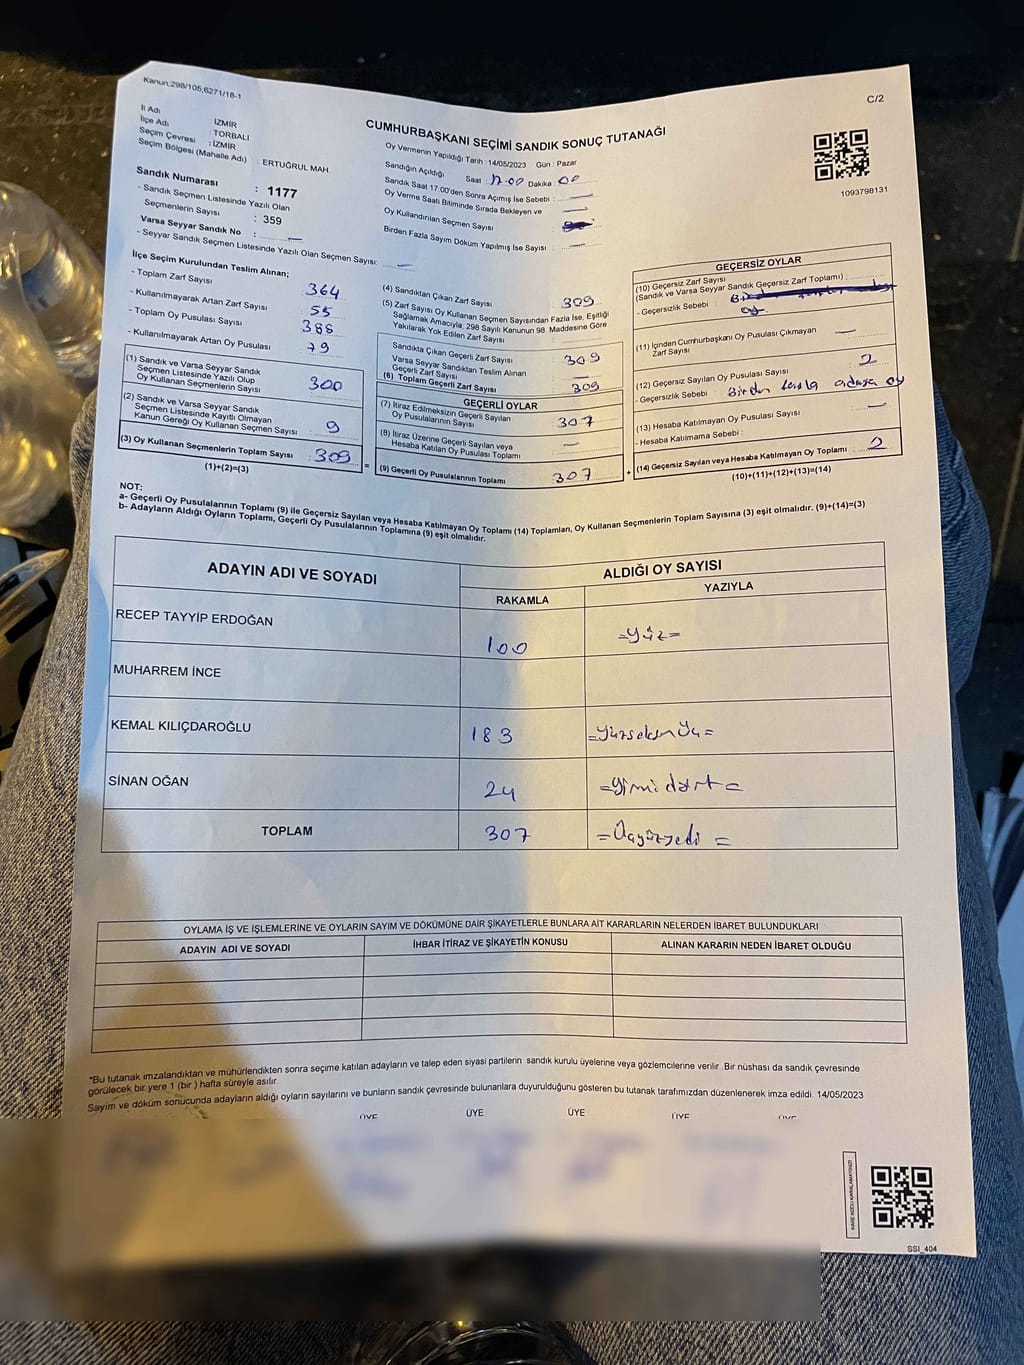 Kanun,298/105,6271/18-1
C/2
İl Adı : İZMİR
İlçe Adı : TORBALI
Seçim Çevresi : İZMİR
Seçim Bölgesi (Mahalle Adı) : ERTUĞRUL MAH
Sandık Numarası : 1177
- Sandık Seçmen Listesinde Yazılı Olan
Seçmenlerin Sayısı : 359
Varsa Seyyar Sandık No : —
- Seyyar Sandık Seçmen Listesinde Yazılı Olan Seçmen Sayısı: —
CUMHURBAŞKANI SEÇİMİ SANDIK SONUÇ TUTANAĞI
Oy Vermenin Yapıldığı Tarih :14/05/2023 Gün : Pazar
Sandığın Açıldığı Saat : 17.00 Dakika : 00
Sandık Saat 17.00'den Sonra Açımış İse Sebebi : —
Oy Verme Saati Bitiminde Sırada Bekleyen ve —
Oy Kullandırılan Seçmen Sayısı
Birden Fazla Sayım Döküm Yapılmış İse Sayısı —
1093798131
İlçe Seçim Kurulundan Teslim Alınan;
- Toplam Zarf Sayısı 364
- Kullanılmayarak Artan Zarf Sayısı 55
- Toplam Oy Pusulası Sayısı 388
- Kullanılmayarak Artan Oy Pusulası 79
(1) Sandık ve Varsa Seyyar Sandık
Seçmen Listesinde Yazılı Olup
Oy Kullanan Seçmenlerin Sayısı 300
(2) Sandık ve Varsa Seyyar Sandık
Seçmen Listesinde Kayıtlı Olmayan
Kanun Gereği Oy Kullanan Seçmen Sayısı : 9
(3) Oy Kullanan Seçmenlerin Toplam Sayısı : 309
(1)+(2)=(3)
=
(4) Sandıktan Çıkan Zarf Sayısı 309
(5) Zarf Sayısı Oy Kullanan Seçmen Sayısından Fazla İse, Eşitliği
Sağlamak Amacıyla; 298 Sayılı Kanunun 98. Maddesine Göre
Yakılarak Yok Edilen Zarf Sayısı :
Sandıkta Çıkan Geçerli Zarf Sayısı 309
Varsa Seyyar Sandıktan Teslim Alınan
Geçerli Zarf Sayısı —
(6) Toplam Geçerli Zarf Sayısı 309
GEÇERLİ OYLAR
(7) İtiraz Edilmeksizin Geçerli Sayılan
Oy Pusulalarının Sayısı 307
(8) İtiraz Üzerine Geçerli Sayılan veya
Hesaba Katılan Oy Pusulası Toplamı —
(9) Geçerli Oy Pusulalarının Toplamı 307
+
GEÇERSİZ OYLAR
(10) Geçersiz Zarf Sayısı
(Sandık ve Varsa Seyyar Sandık Geçersiz Zarf Toplamı) :
- Geçersizlik Sebebi :
(11) İçinden Cumhurbaşkanı Oy Pusulası Çıkmayan
Zarf Sayısı —
(12) Geçersiz Sayılan Oy Pusulası Sayısı : 2
- Geçersizlik Sebebi : Birden fazla adaya oy
(13) Hesaba Katılmayan Oy Pusulası Sayısı : —
- Hesaba Katılmama Sebebi :
(14) Geçersiz Sayılan veya Hesaba Katılmayan Oy Toplamı : 2
(10)+(11)+(12)+(13)=(14)
NOT:
a- Geçerli Oy Pusulalarının Toplamı (9) ile Geçersiz Sayılan veya Hesaba Katılmayan Oy Toplamı (14) Toplamları, Oy Kullanan Seçmenlerin Toplam Sayısına (3) eşit olmalıdır. (9)+(14)=(3)
b- Adayların Aldığı Oyların Toplamı, Geçerli Oy Pusulalarının Toplamına (9) eşit olmalıdır.
ADAYIN ADI VE SOYADI
ALDIĞI OY SAYISI
RAKAMLA YAZIYLA
RECEP TAYYİP ERDOĞAN 100 =Yüz=
MUHARREM İNCE
KEMAL KILIÇDAROĞLU 183 =Yüzseksenüç=
SİNAN OĞAN 24 =Yirmidört=
TOPLAM 307 =Üçyüzyedi=
OYLAMA İŞ VE İŞLEMLERİNE VE OYLARIN SAYIM VE DÖKÜMÜNE DAİR ŞİKAYETLERLE BUNLARA AİT KARARLARIN NELERDEN İBARET BULUNDUKLARI
ADAYIN ADI VE SOYADI İHBAR İTİRAZ VE ŞİKAYETİN KONUSU ALINAN KARARIN NEDEN İBARET OLDUĞU
*Bu tutanak imzalandıktan ve mühürlendikten sonra seçime katılan adayların ve talep eden siyasi partilerin sandık kurulu üyelerine veya gözlemcilerine verilir. Bir nüshası da sandık çevresinde
görülecek bir yere 1 (bir ) hafta süreyle asılır.
Sayım ve döküm sonucunda adayların aldığı oyların sayılarını ve bunların sandık çevresinde bulunanlara duyurulduğunu gösteren bu tutanak tarafımızdan düzenlenerek imza edildi. 14/05/2023
ÜYE ÜYE ÜYE ÜYE ÜYE
SSI_404